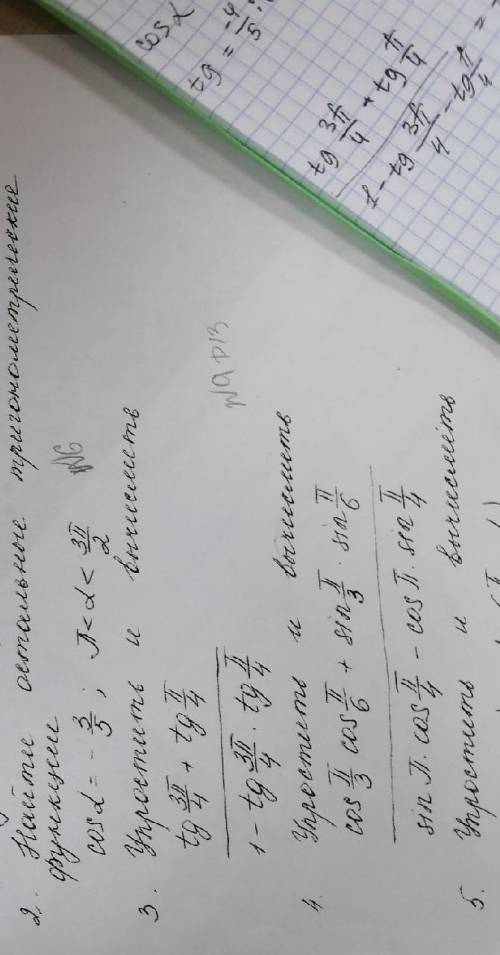 2. Найти остальные тригонометрические
функции
cos α = - 3/5 ; π < α < 3π/2
№6
3. Упростить и вычислить
(tg 3π/4 + tg π/4) / (1 - tg 3π/4 · tg π/4)
4. Упростить и вычислить
(cos π/3 cos π/6 + sin π/3 · sin π/6) / (sin π · cos π/4 - cos π · sin π/4)
5. Упростить и вычислить
cos α
tg = -4/5 :
(tg 3π/4 + tg π/4) / (1 - tg 3π/4 - tg π/4) =